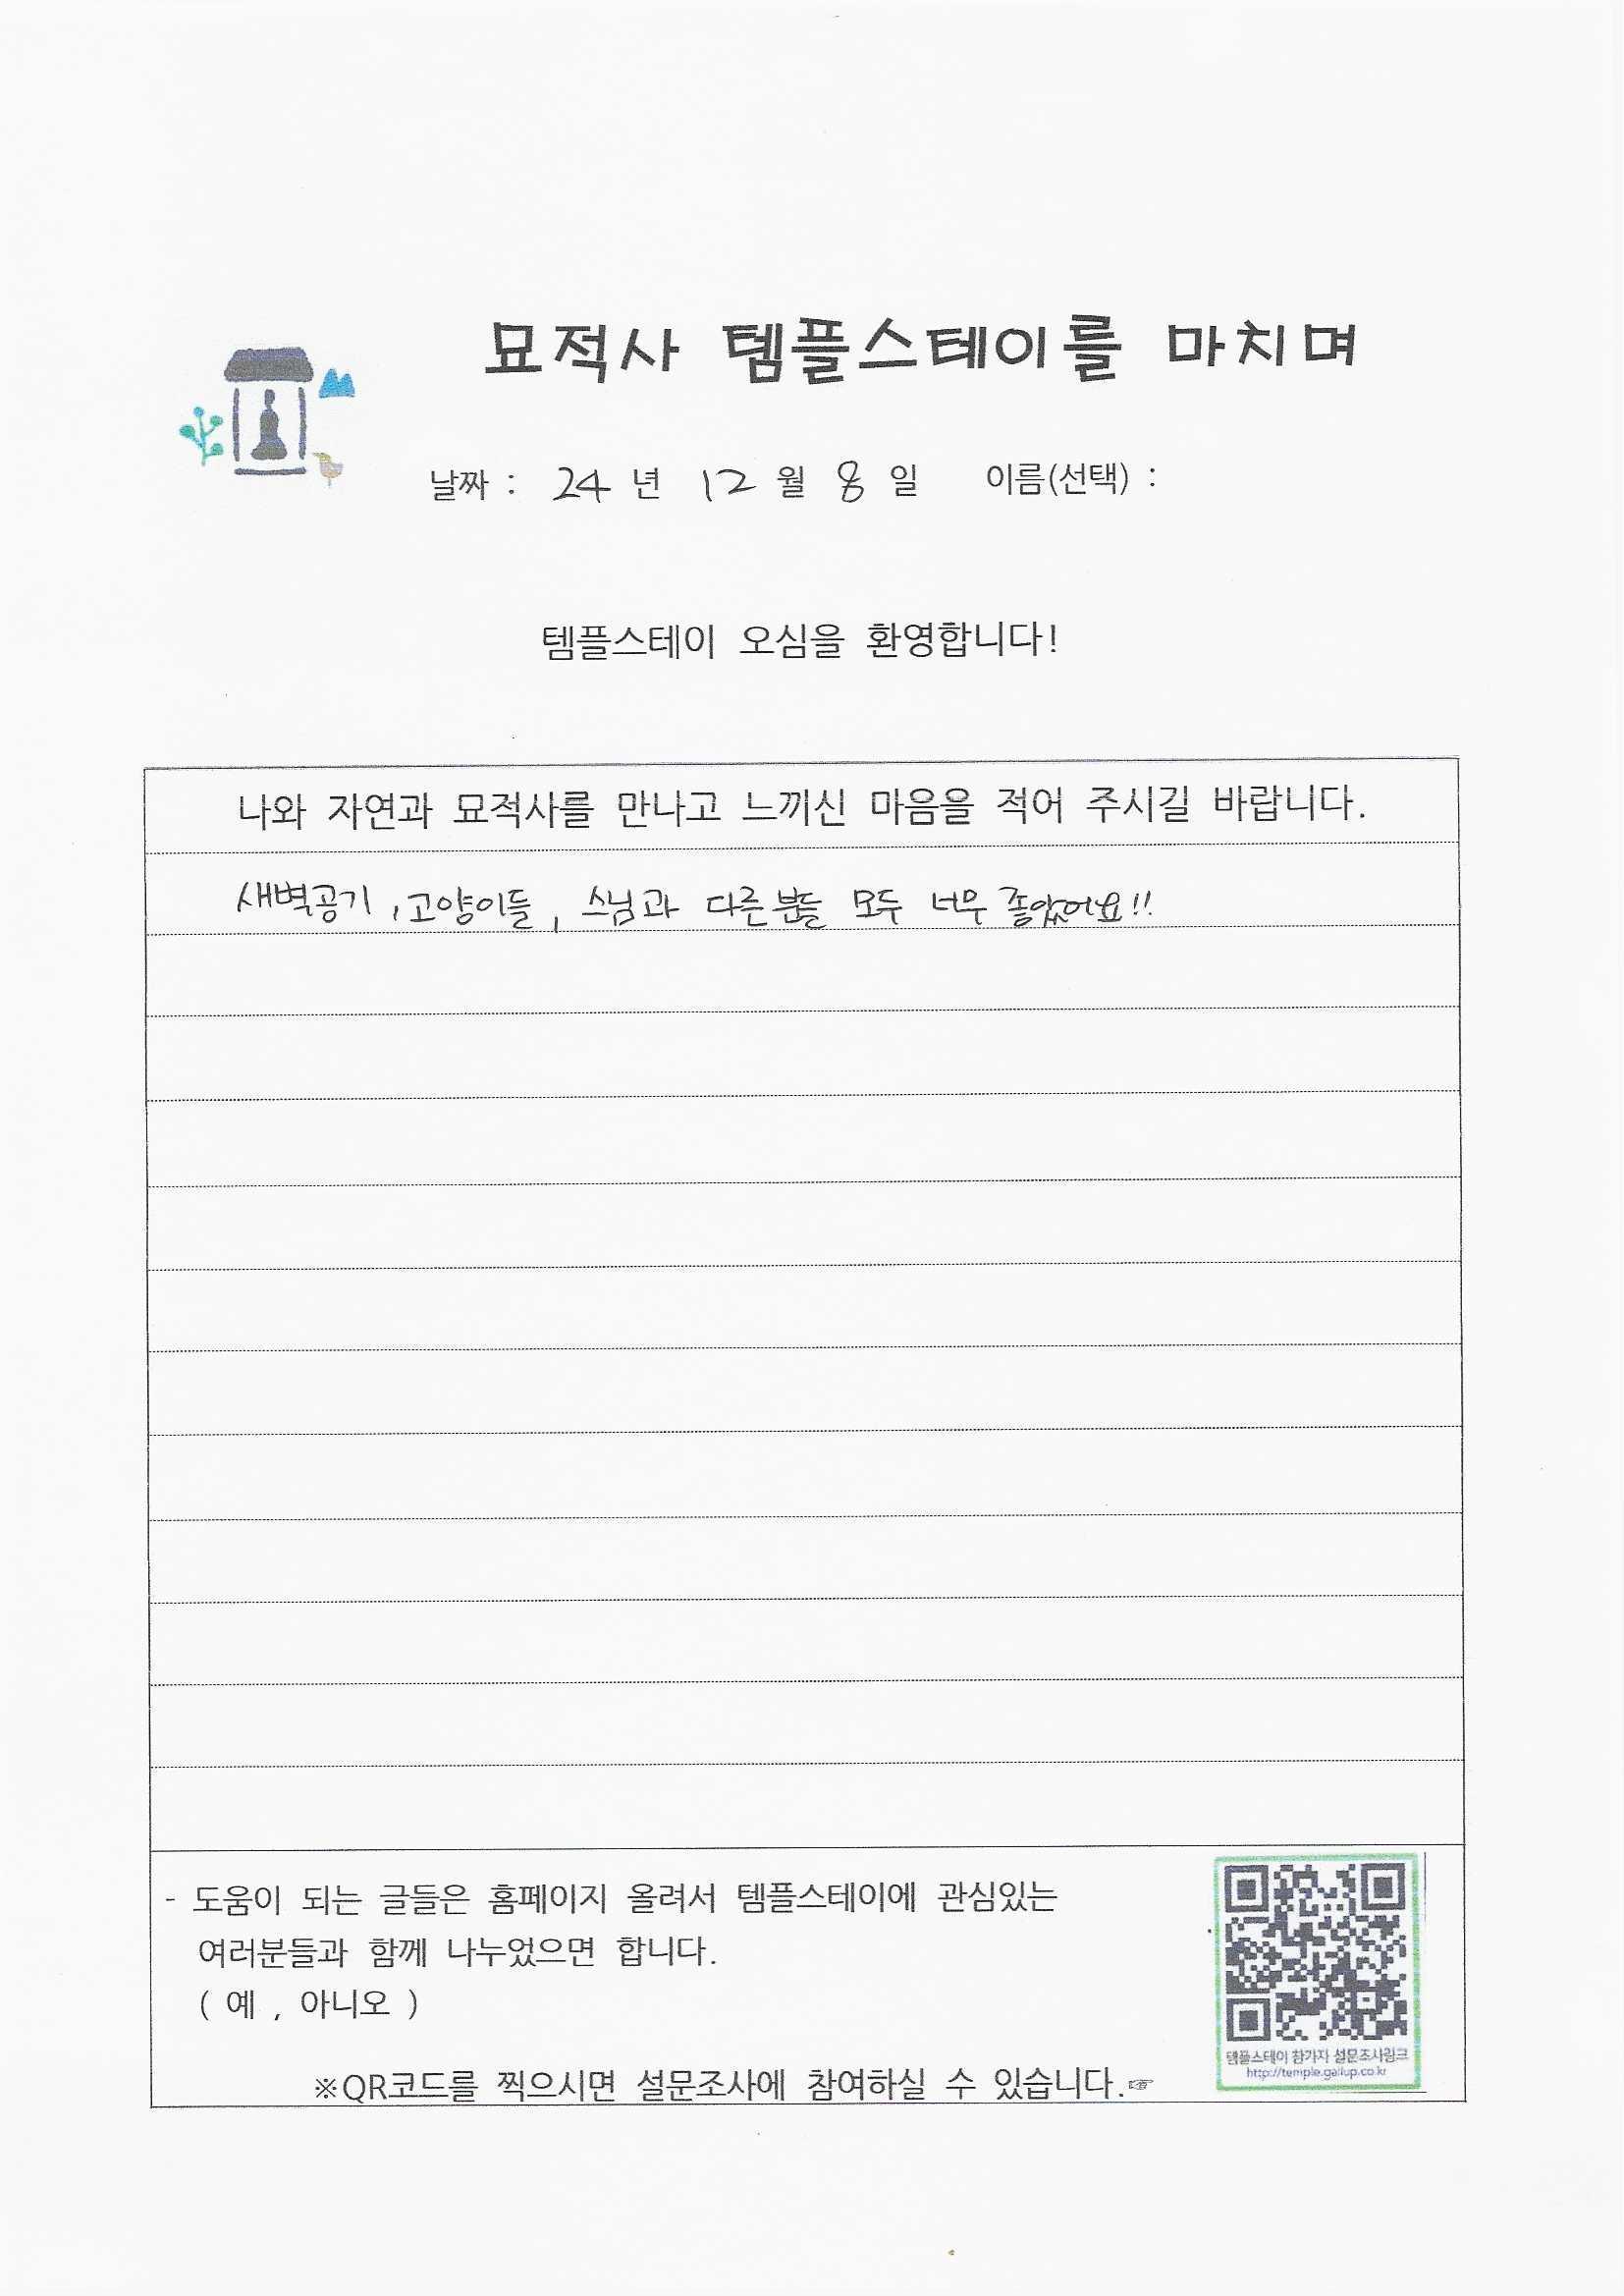 묘적사 템플스테이를 마치며
날짜 : 24 년 12 월 8 일 이름(선택) :
템플스테이 오심을 환영합니다!
나와 자연과 묘적사를 만나고 느끼신 마음을 적어 주시길 바랍니다.
새벽공기, 고양이들, 스님과 다른분들 모두 너무 좋았어요!!
- 도움이 되는 글들은 홈페이지 올려서 템플스테이에 관심있는
여러분들과 함께 나누었으면 합니다.
( 예 , 아니오 )
템플스테이 참가자 설문조사링크
http://temple.gallup.co.kr
※QR코드를 찍으시면 설문조사에 참여하실 수 있습니다.☞